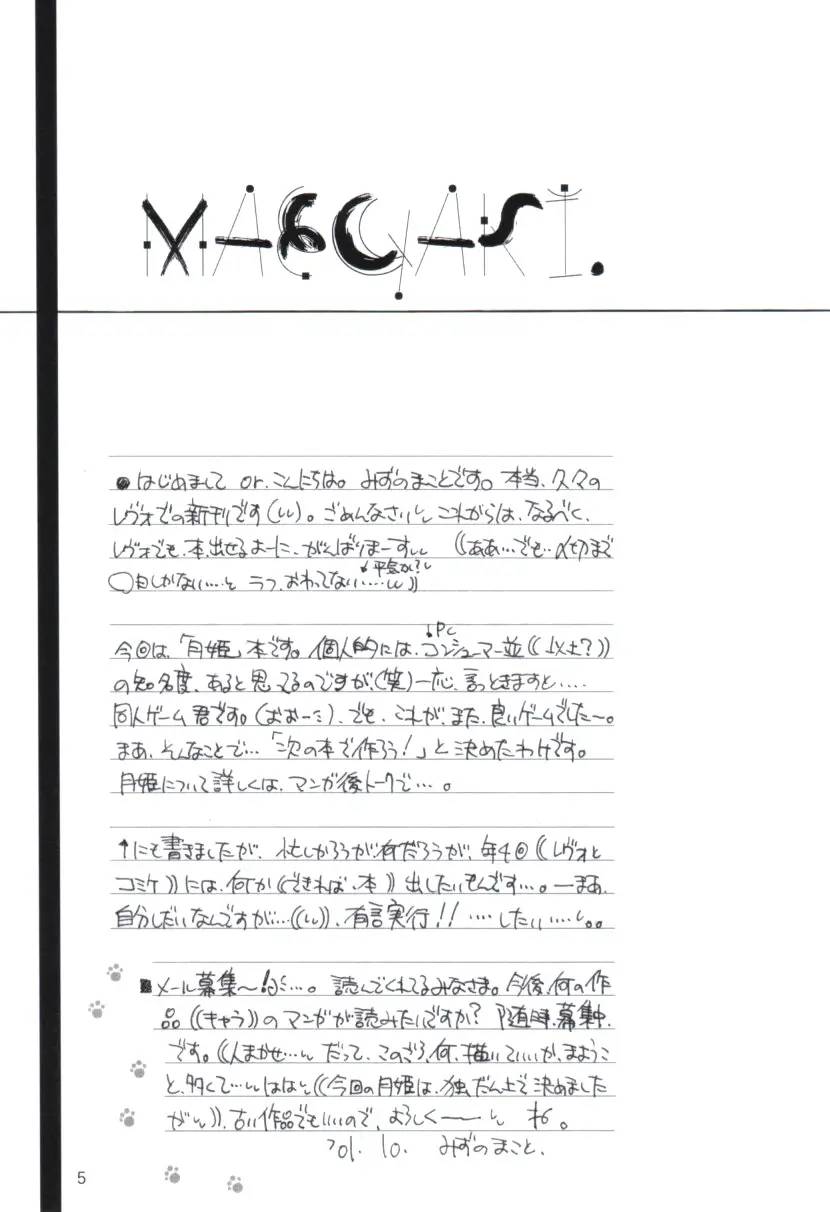 MAEGAKI.
●はじめまして or. こんにちは。みずのまことです。本当、久々の
レヴォでの新刊です(ιι)。ごめんなさいし、これからは、なるべく、
レヴォでも、本、出せるよーに、がんばりまーすιι ((ああ…でも…〆切まで
↓平気か?
〇日しかない…、とラフ、おわってない……ιι))
↓PC
今回は、「月姫」本です。個人的には、コンシューマー並((以上?))
の知名度、あると思ってるのですが、(笑)一応、言っときますと、….
同人ゲーム君です。(おおーミ)、でも、これが、また、良いゲームでした〜。
まあ、そんなことで…「次の本で作ろう!」と決めたわけです。
月姫について詳しくは、マンガ後トークで…。
↑にも書きましたが、忙しかろうが何だろうが、年4回((レヴォと
コミケ))には、何か((できれば、本))出したいもんです…。—まあ、
自分しだいなんですが…((ιι))、有言実行!! ….したい….。。
■メール募集〜!…。読んでくれてるみなさま。今後、何の作
品((キャラ))のマンガが読みたいですか?随時、募集中、
です。((人まかせ…ιι だって、このごろ、何、描いていいか、まようこ
と、多くて…ιιははし((今回の月姫は、独だん上で決めました
がιι))、古い作品でもいいので、よろしく——
'01. 10. みずのまこと、
5